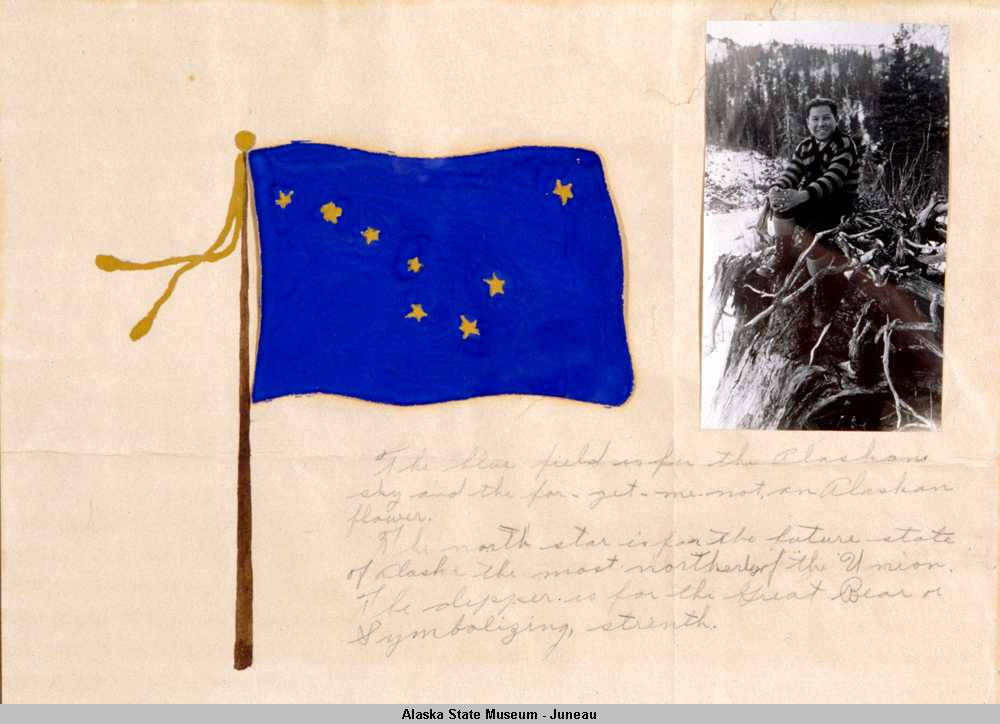 The blue field is for the Alaskan
sky and the for-get-me-not, an Alaskan
flower.
The north star is for the future state
of Alaska the most northerly of the Union.
The dipper is for the Great Bear &
Symbolizing, strenth.
Alaska State Museum - Juneau